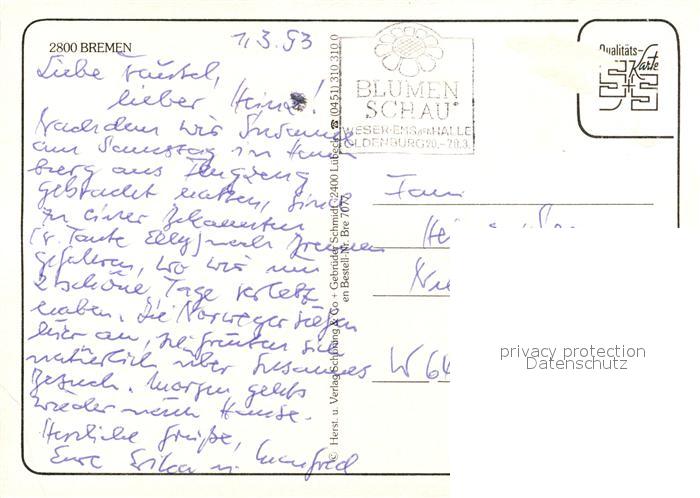 2800 BREMEN
1.3.93
Liebe
lieber Heinz!
Nachdem wir Susanne
am Samstag in Ham
burg ans Flugzeug
gebracht hatten, sind
zu einer Bekannten
(v. Tante Elly) nach Bremen
gefahren, wo wir nun
2 schöne Tage verlebt
haben. Die Norweger riefen
hier an, sie freuten sich
natürlich über Susannes
Besuch. Morgen gehts
wieder nach Hause.
Herzliche Grüße,
Eure Erika u. Manfred
© Herst. u. Verlag Schöning & Co + Gebrüder Schmidt, 2400 Lübeck ☎ (0451) 310 310 0
en Bestell-Nr. Bre 7077
BLUMEN
SCHAU
WESER-EMS-HALLE
OLDENBURG 20.-28.3.
Qualitäts-
Karte
Fam
He
Nie
W 64
privacy protection
Datenschutz